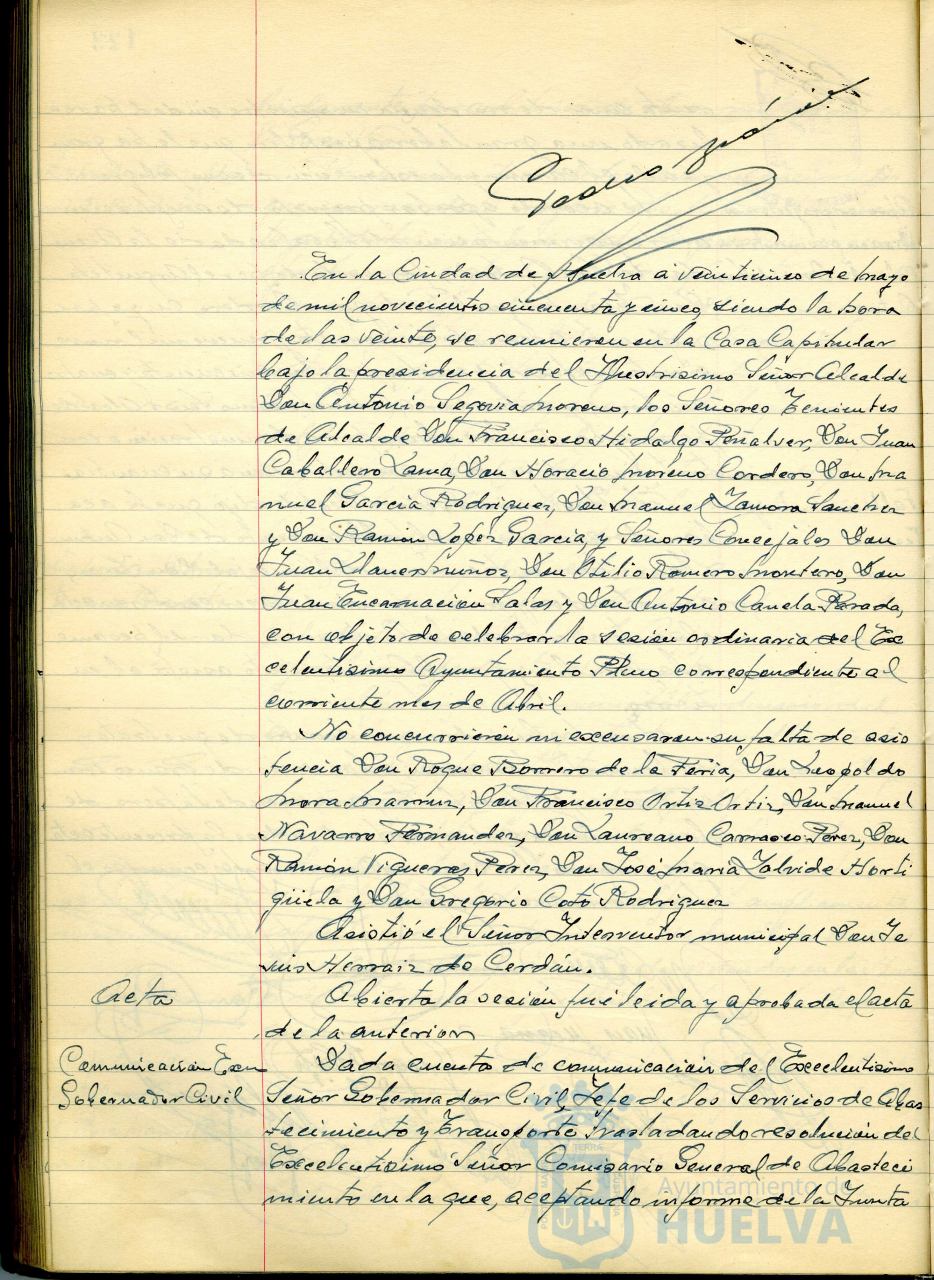 Pedro
En la Ciudad de Huelva a veinticinco de mayo
de mil novecientos cincuenta y cinco, siendo la hora
de las veinte, se reunieron en la Casa Capitular
bajo la presidencia del Ilustrisimo Señor Alcalde
Don Antonio Segovia Moreno, los Señores Tenientes
de Alcalde Don Francisco Hidalgo Peñalver, Don Juan
Caballero Lama, Don Horacio Moreno Cordero, Don Ma
nuel Garcia Rodriguez, Don Manuel Zamora Sanchez
y Don Ramón Lopez Garcia, y Señores Concejales Don
Juan Llanes Muñoz, Don Otilio Romero Montero, Don
Juan Encarnación Salas y Don Antonio Canela Parada,
con objeto de celebrar la sesión ordinaria del Ex
celentisimo Ayuntamiento Pleno correspondiente al
corriente mes de Abril.
No concurrieron ni excusaron su falta de asis
tencia Don Roque Borrero de la Feria, Don Leopoldo
Mora Don Francisco Ortiz Ortiz, Don Manuel
Navarro Fernandez, Don Laureano Carrasco Perez, Don
Ramón Vigueras Perez, Don José Maria Zalvide Horti
güela y Don Gregorio Coto Rodriguez
Asistió el Señor Interventor municipal Don Je
sus Herraiz de Cerdán.
Acta
Abierta la sesión fué leida y aprobada el acta
de la anterior
Comunicación Excmo
Gobernador Civil
Dada cuenta de comunicación del Excelentisimo
Señor Gobernador Civil, Jefe de los Servicios de Abas
tecimiento y Transporte trasladando resolución del
Excelentisimo Señor Comisario General de Abasteci
miento en la que, aceptando informe de la Junta
Ayuntamiento de
HUELVA